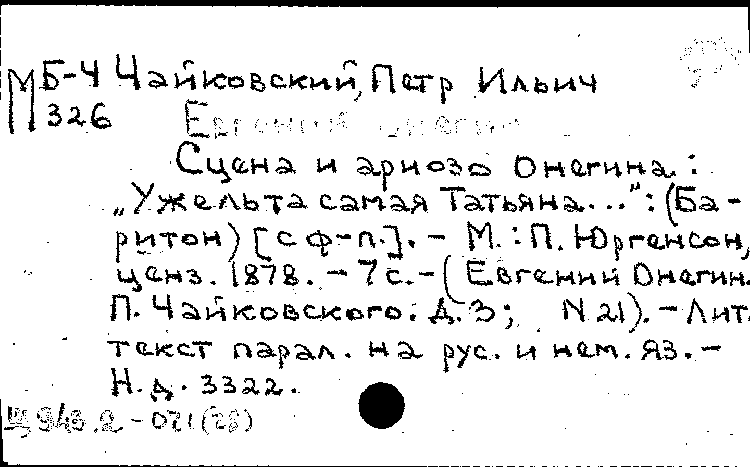 М Б-4 Чайковский, Петр Ильич
326 Евгений Онегин
Сцена и ариозо Онегина:
„Ужель та самая Татьяна...“: (Ба-
ритон) [с ф-п.]. – М.: П. Юргенсон,
ценз. 1878. – 7 с. – (Евгений Онегин.
П. Чайковского. Д. 3; N 21). – Лит.
текст парал. на рус. и нем. яз. –
Н. д. 3322.
Щ 943.2-021(28)